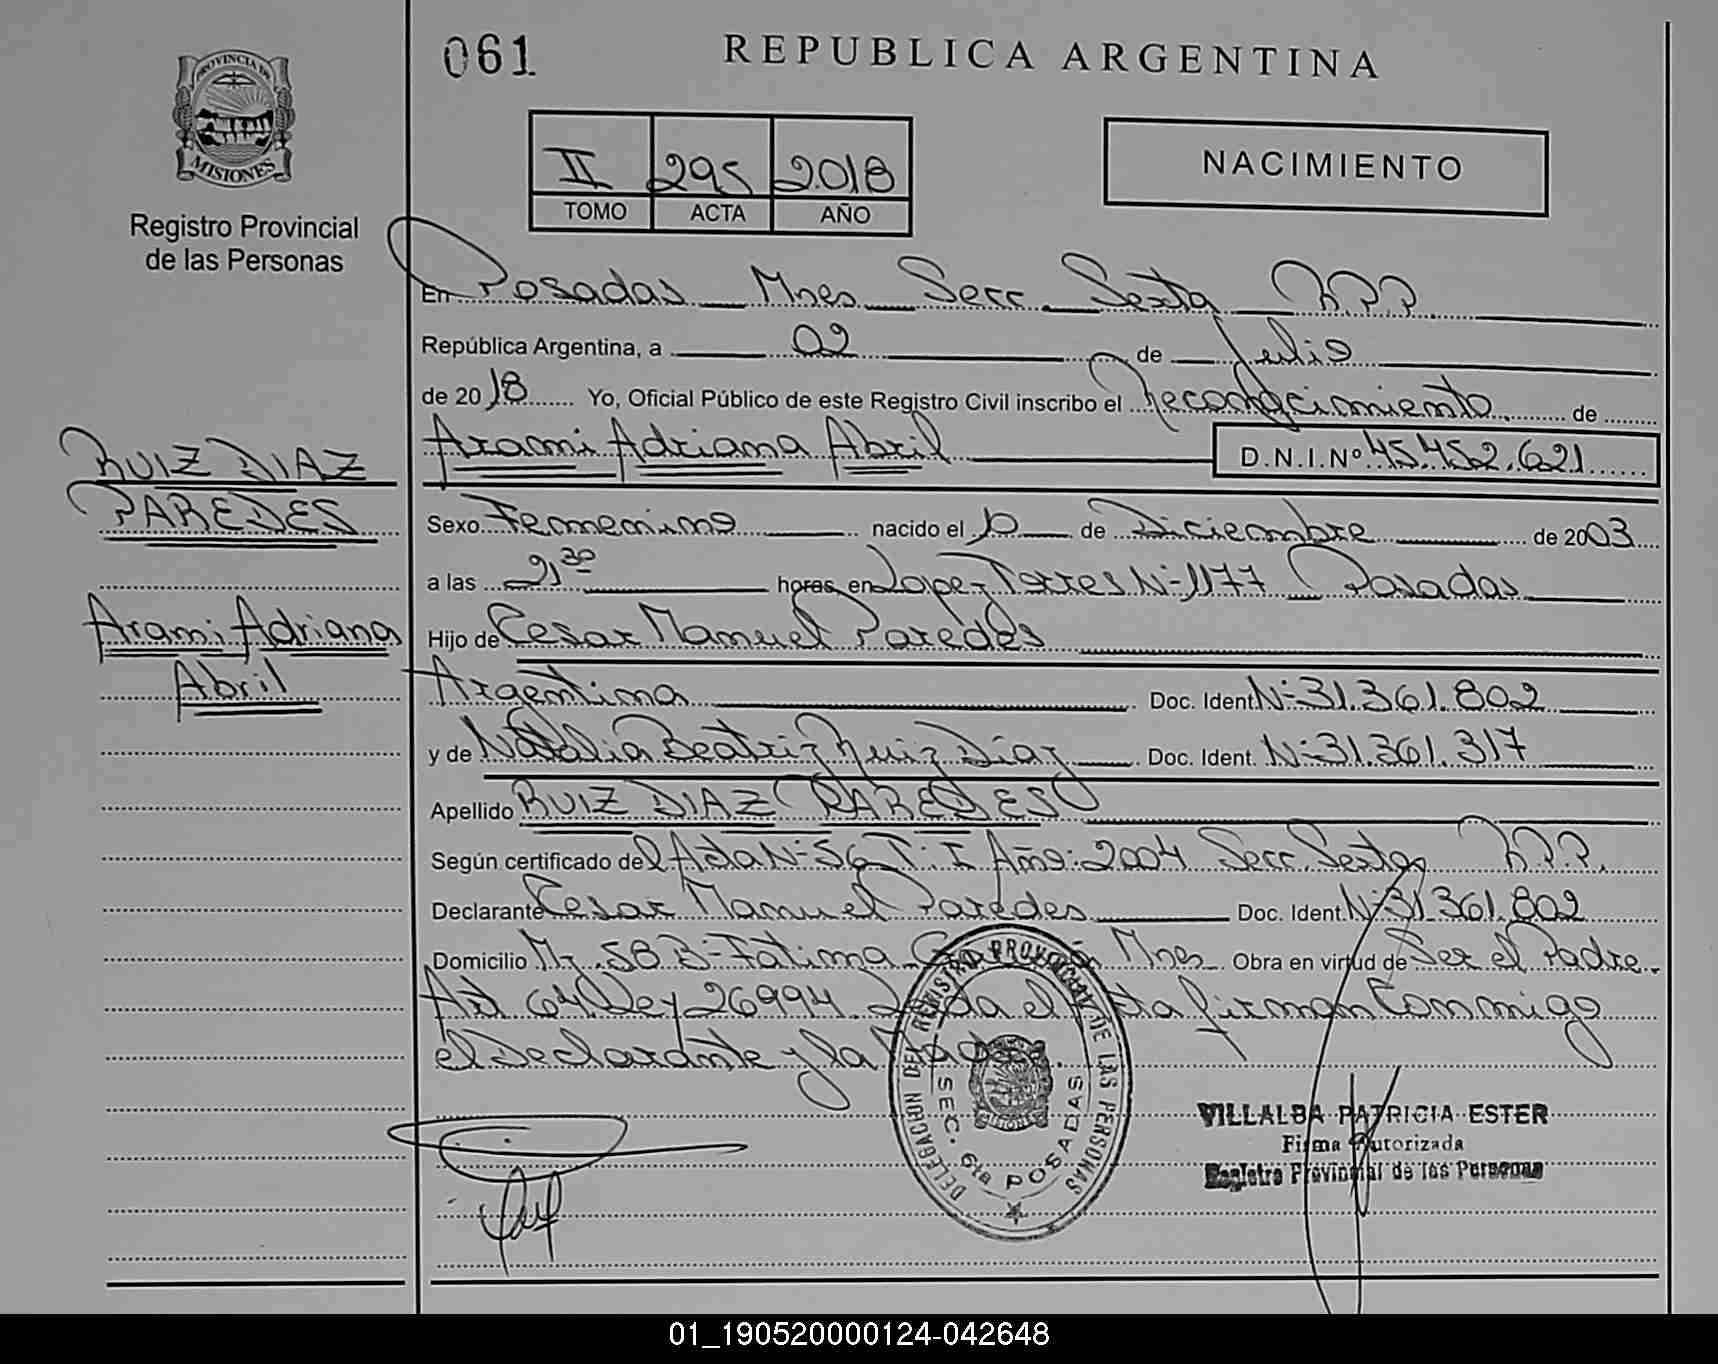 061
REPUBLICA ARGENTINA
PROVINCIA DE
MISIONES
Registro Provincial
de las Personas
II 295 2018
TOMO ACTA AÑO
NACIMIENTO
En Posadas Mnes Secc. Sexta R.P.P.
República Argentina, a 02 de Julio
de 2018 Yo, Oficial Público de este Registro Civil inscribo el Reconocimiento de
Arami Adriana Abril D.N.I.Nº 45.452.621
RUIZ DIAZ
PAREDES
Arami Adriana
Abril
Sexo Femenino nacido el 10 de Diciembre de 2003
a las 21 30 horas en Lopez Torres N-1177 Posadas
Hijo de Cesar Manuel Paredes
Argentina Doc. Ident N-31.361.802
y de Natalia Beatriz Ruiz Díaz Doc. Ident. N-31.361.317
Apellido RUIZ DIAZ PAREDES
Según certificado del Acta N-56 T: I Año: 2004 Secc. Sexta R.P.P.
Declarante Cesar Manuel Paredes Doc. Ident. N-31.361.802
Domicilio Mz. 58 B-Fátima Mnes Obra en virtud de Ser el Padre.
Art 64 Ley 26994. el firman Conmigo
el Declarante y la
DELEGACION DEL REGISTRO PROVINCIAL DE LAS PERSONAS
SEC. 6ta POSADAS
MISIONES
VILLALBA PATRICIA ESTER
Firma Autorizada
Registro Provincial de las Personas
01_190520000124-042648